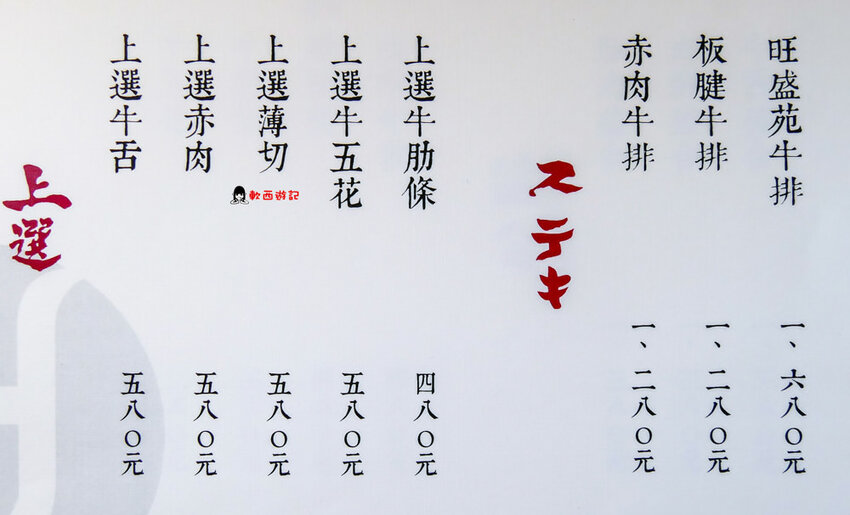 旺盛苑牛排 一、六八〇元
板腱牛排 一、二八〇元
赤肉牛排 一、二八〇元
ステキ
上選牛肋條 四八〇元
上選牛五花 五八〇元
上選薄切 五八〇元
軟西遊記
上選赤肉 五八〇元
上選牛舌 五八〇元
上選